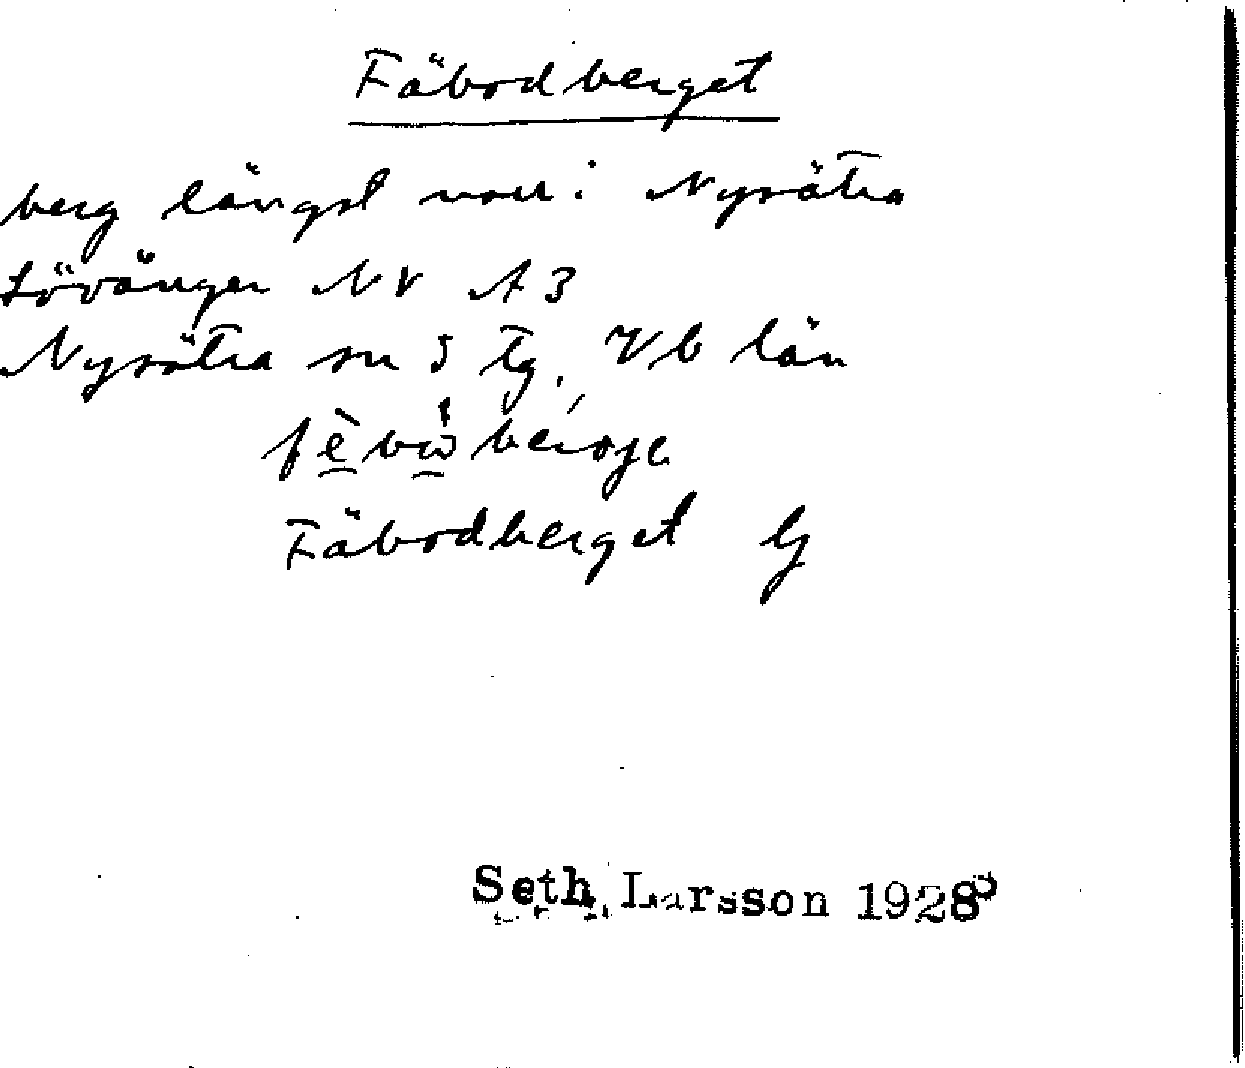 Fäbodberget
berg längst norr i Nysätra
Lövånger NV A3
Nysätra sn S tg, Vb län
Fäbodberget G
Seth Larsson 1928